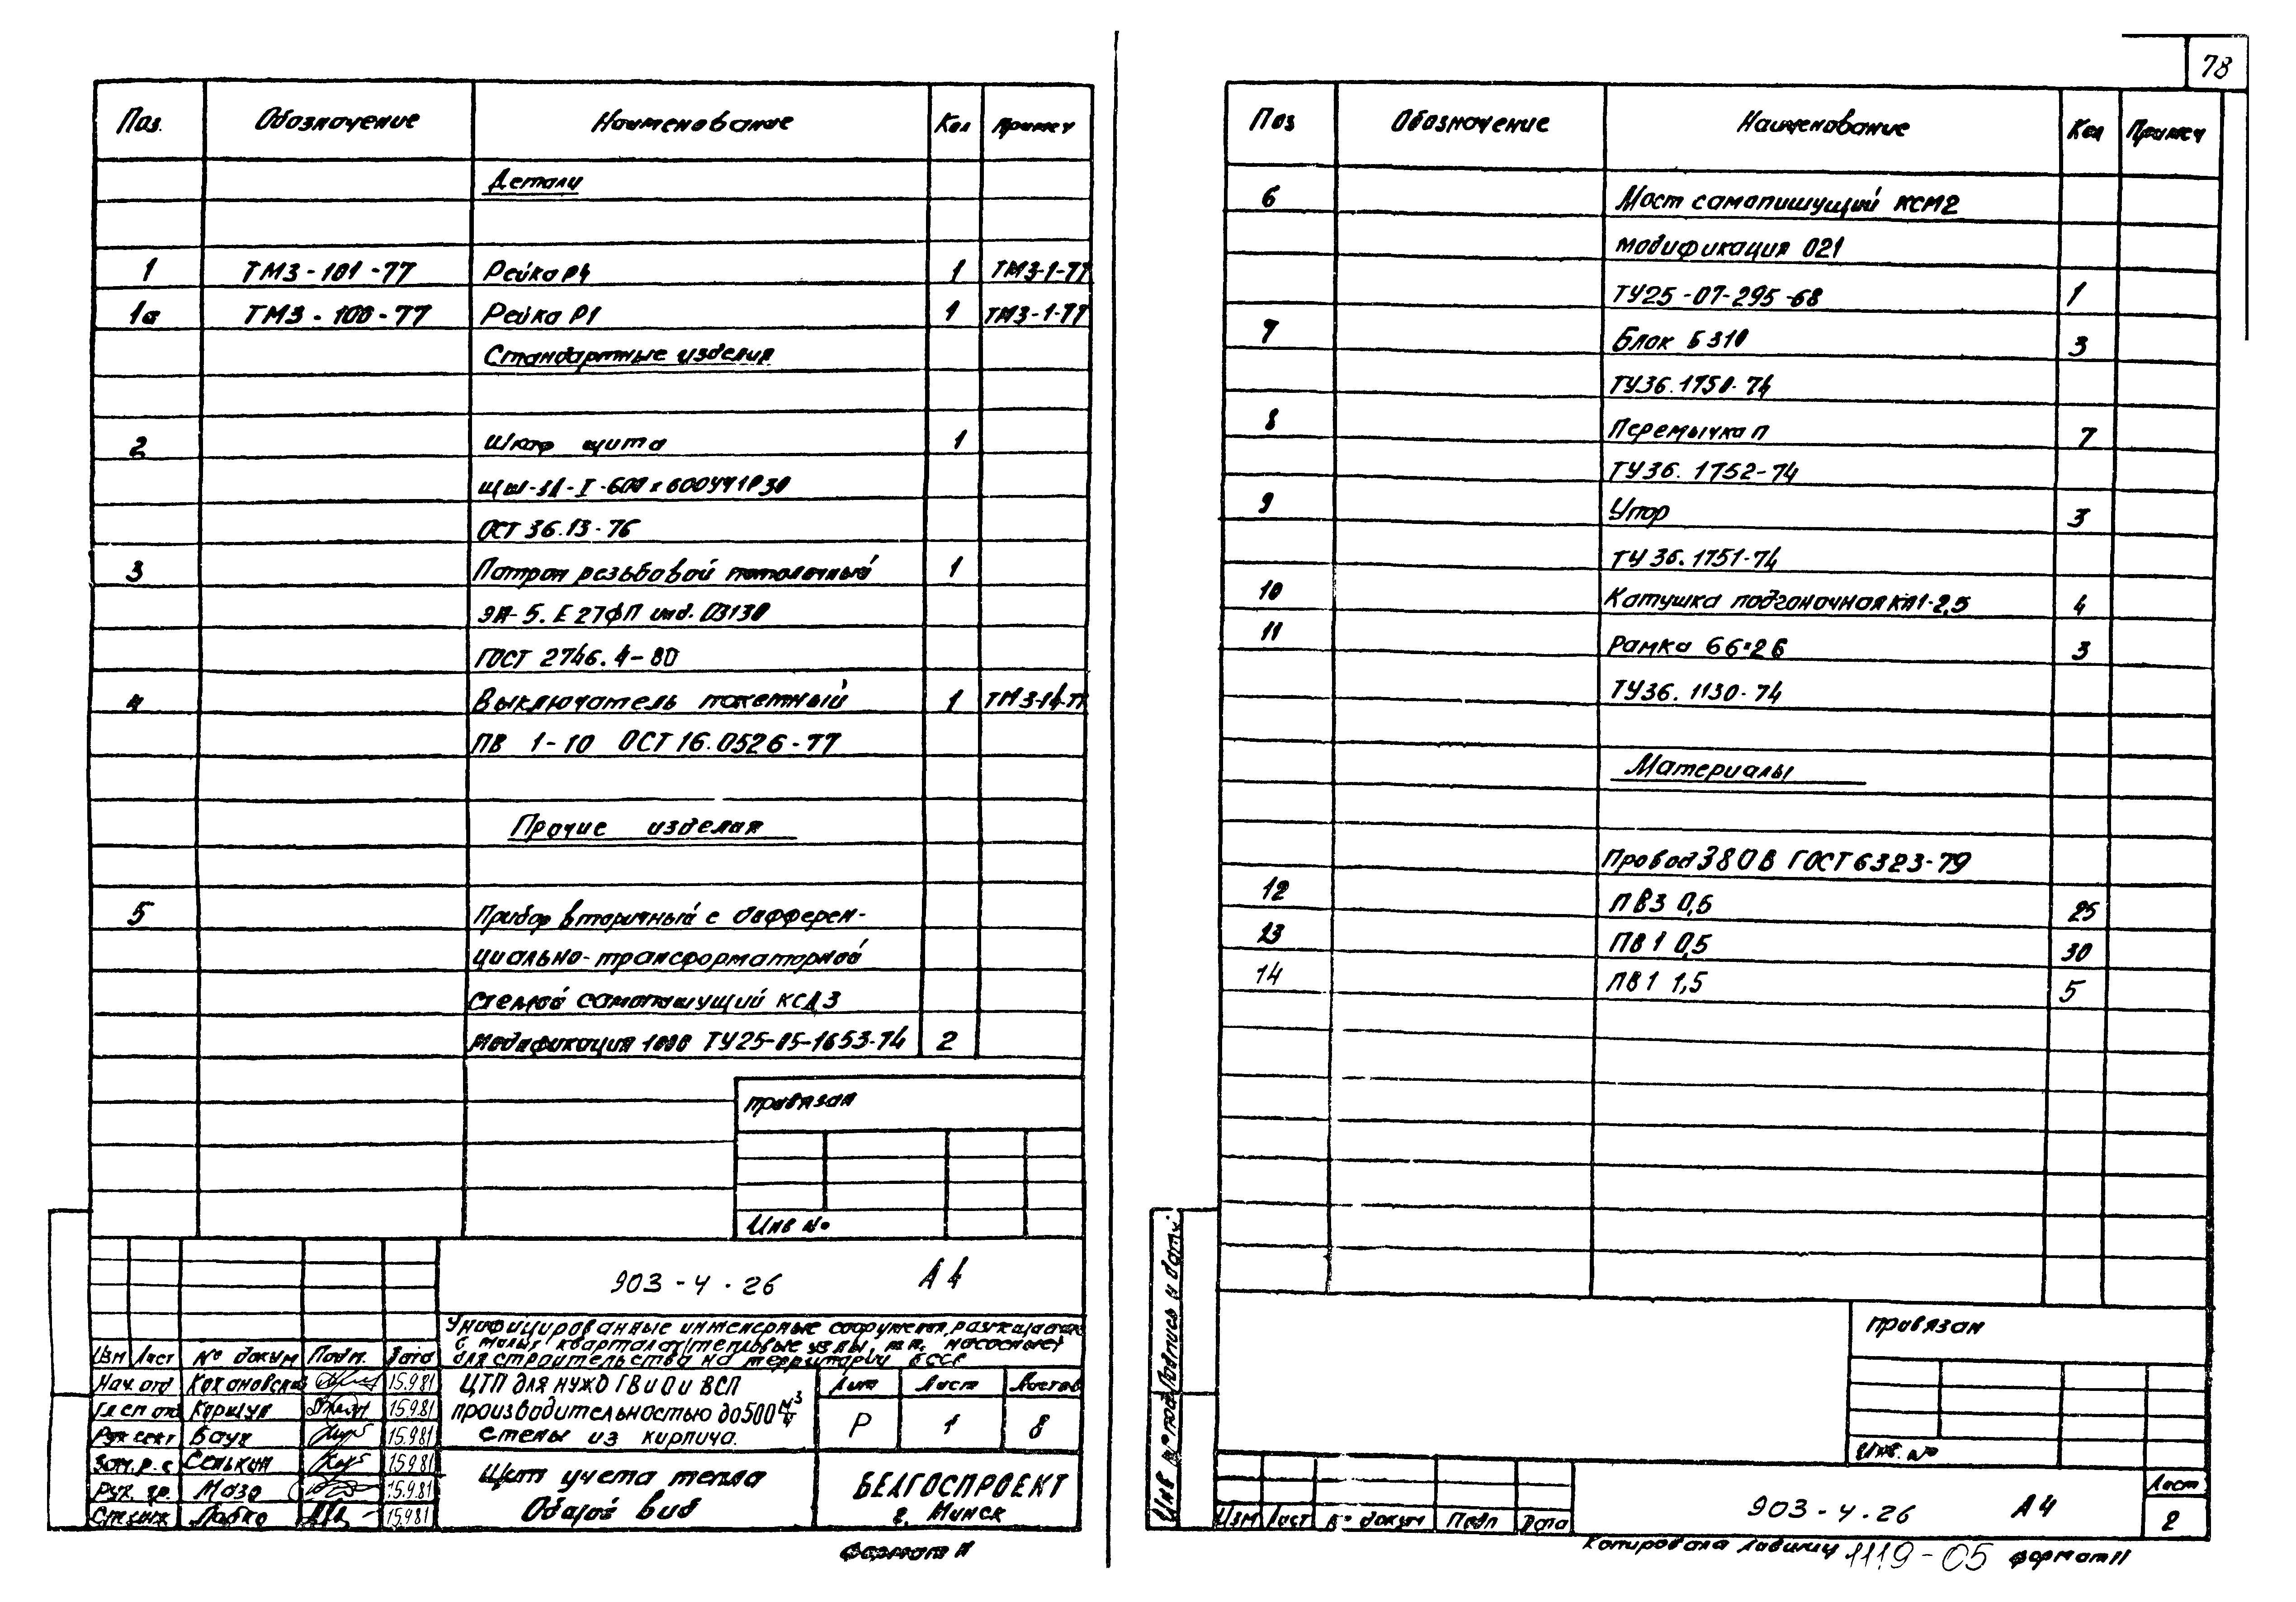 78
Поз. Обозначение Наименование Кол Примеч
Детали
1 ТМ3-101-77 Рейка Р4 1 ТМ3-1-77
1а ТМ3-100-77 Рейка Р1 1 ТМ3-1-77
Стандартные изделия
2 Шкаф щита 1
ОСТ 36.13-76
3 Патрон резьбовой потолочный 1
Е27ФП инд. 03130
ГОСТ 2746.4-80
4 Выключатель пакетный 1
ПВ 1-10 ОСТ 16.0526-77
Прочие изделия
5 Прибор вторичный с дифферен-
циально-трансформаторной
схемой самопишущий КСД3
модификация ТУ25-05-1653-74 2
привязан
Инв №
903-4.26 А4
Унифицированные инженерные
квартала (тепловые узлы, насосные)
для строительства на территории БССР
Изм Лист № докум Подп. Дата
Нач. отд Кохановский 15.9.81
ЦТП для нужд ГВ и О и ВСП
Лит Лист Листов
Коршун 15.9.81
производительностью до 500 м³/ч
Р 1 8
Рук сект Баух 15.9.81
стены из кирпича.
Зам.р.с Сенькин 15.9.81
Щит учета тепла
БЕЛГОСПРОЕКТ
Рук. гр. Мазо 15.9.81
Общий вид
г. Минск
Ст. инж Лабко 15.9.81
Формат 11
Поз Обозначение Наименование Кол Примеч
6 Мост самопишущий КСМ2
модификация 021
ТУ25-07-295-68 1
7 Блок Б310 3
ТУ36.1750-74
8 Перемычка П 7
ТУ36.1752-74
9 Упор 3
ТУ36.1751-74
10 Катушка подгоночная КП1-2,5 4
11 Рамка 66×26 3
ТУ36.1130-74
Материалы
Провод 380В ГОСТ 6323-79
12 ПВ3 0,6 25
13 ПВ1 0,5 30
14 ПВ1 1,5 5
привязан
Инв. №
Инв № подл Подпись и дата
Изм Лист № докум Подп Дата
903-4.26 А4
Лист
2
Копировала 1119-05 формат 11